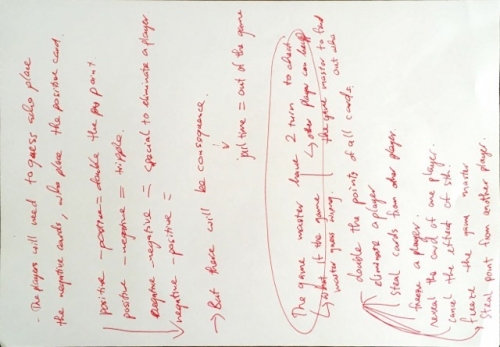 - The players will need to guess who place
the negative cards, who place the positive card.
positive - positive = double the point.
positive - negative = tripple.
negative - negative = special to eliminate a player
negative - positive =
→ But there will be consequence.
↓
jail time = out of the game
The game master have 2 turn to
↳ what if the game ↳ other player can help
master guess wrong. the game master to find
out who
double the points of all cards.
eliminate a player
steal cards from other player.
freeze a player.
reveal the card of one player.
cancel the effect of sth.
freeze the game master
steal point from another player.